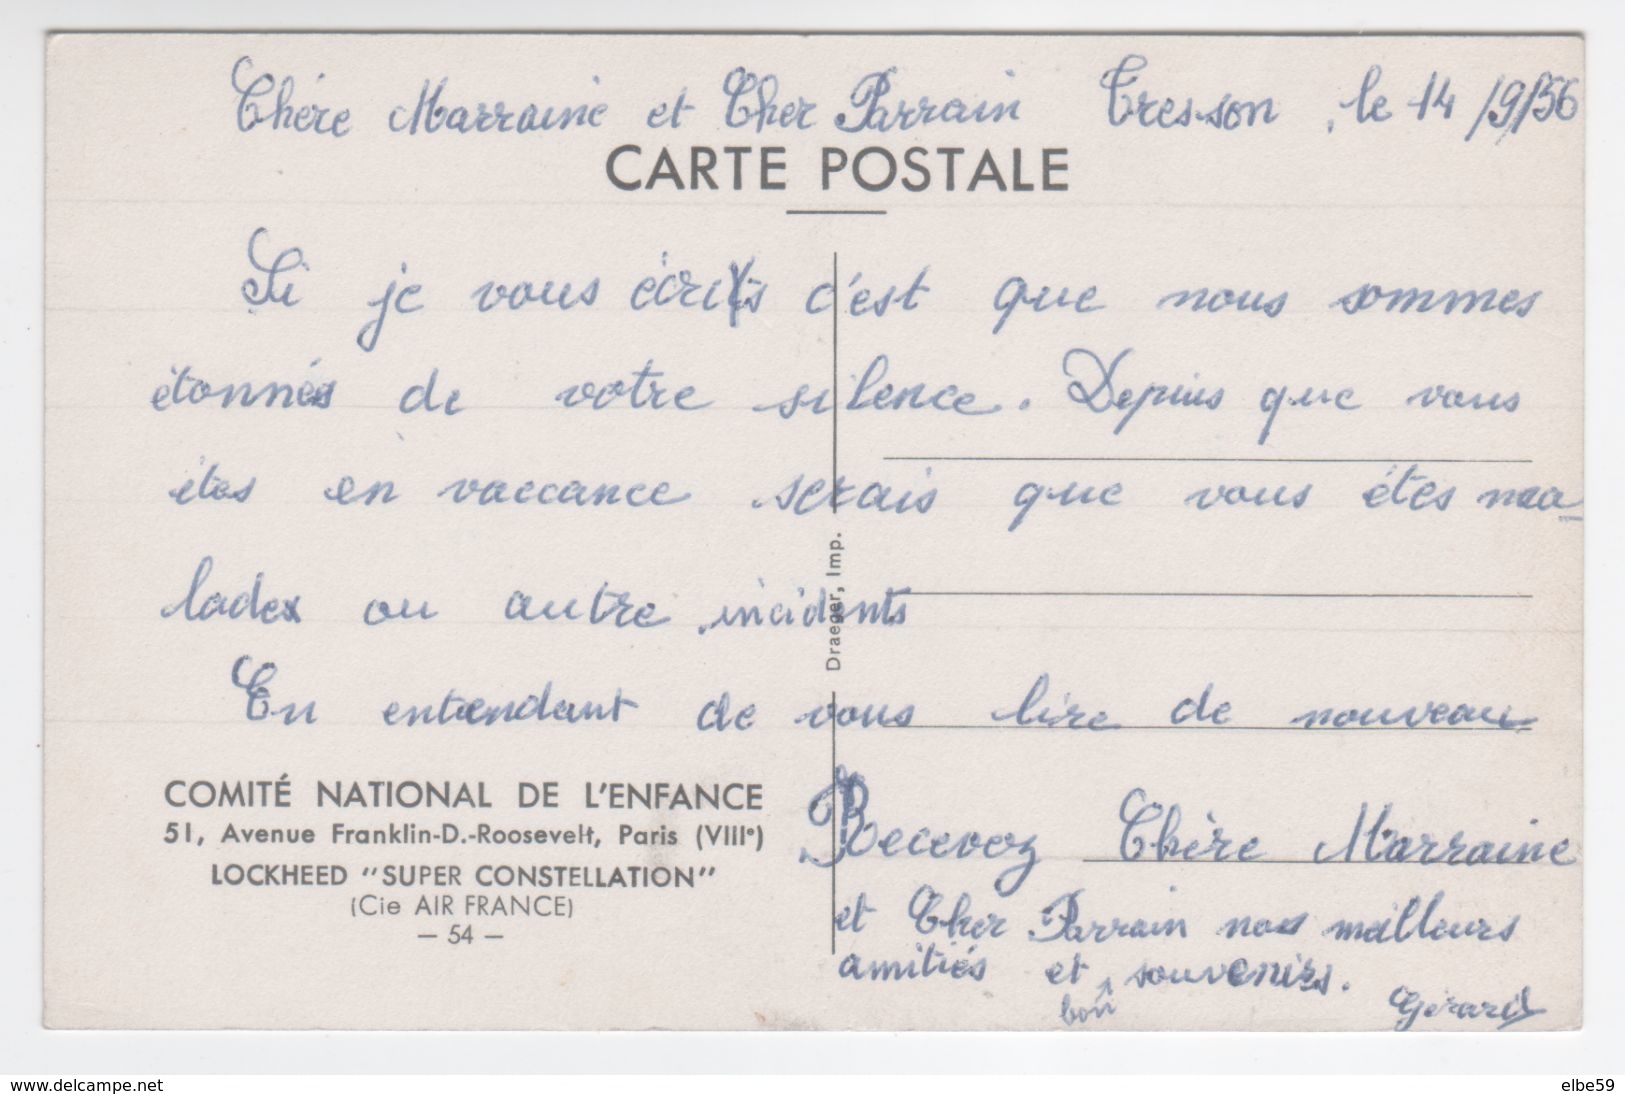 Chère Marraine et Cher Parrain Tresson, le 14/9/56
CARTE POSTALE
Si je vous écris c'est que nous sommes
étonnés de votre silence. Depuis que vous
êtes en vaccance serais que vous étes ma-
lades ou autre incidents
En entendant de vous lire de nouveau
Recevez Chère Marraine
et Cher Parrain nos meilleurs
amitiés et souvenirs.
bon
Gérard
Draeger, Imp.
COMITÉ NATIONAL DE L'ENFANCE
51, Avenue Franklin-D.-Roosevelt, Paris (VIIIe)
LOCKHEED "SUPER CONSTELLATION"
(Cie AIR FRANCE)
— 54 —
www.delcampe.net
elbe59